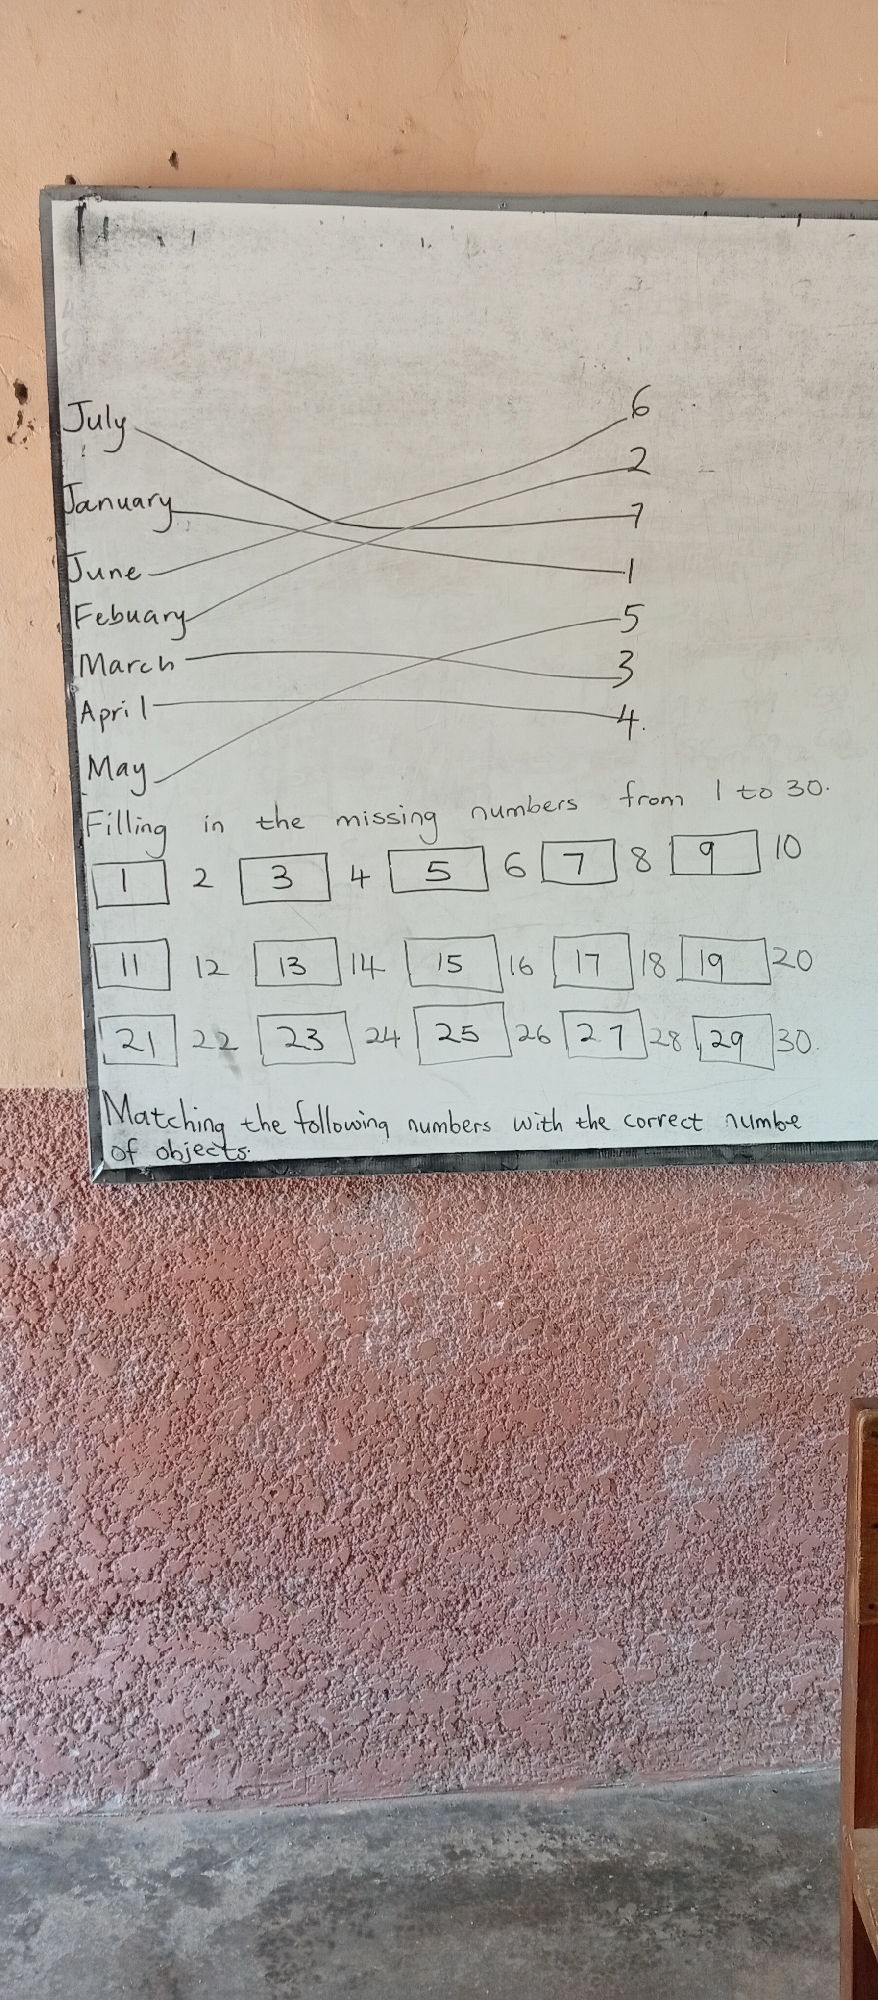 July 6
January 2
June 7
Febuary 1
March 5
April 3
May 4.
Filling in the missing numbers from 1 to 30.
1 2 3 4 5 6 7 8 9 10
11 12 13 14 15 16 17 18 19 20
21 22 23 24 25 26 27 28 29 30.
Matching the following numbers with the correct numbe
of objects.